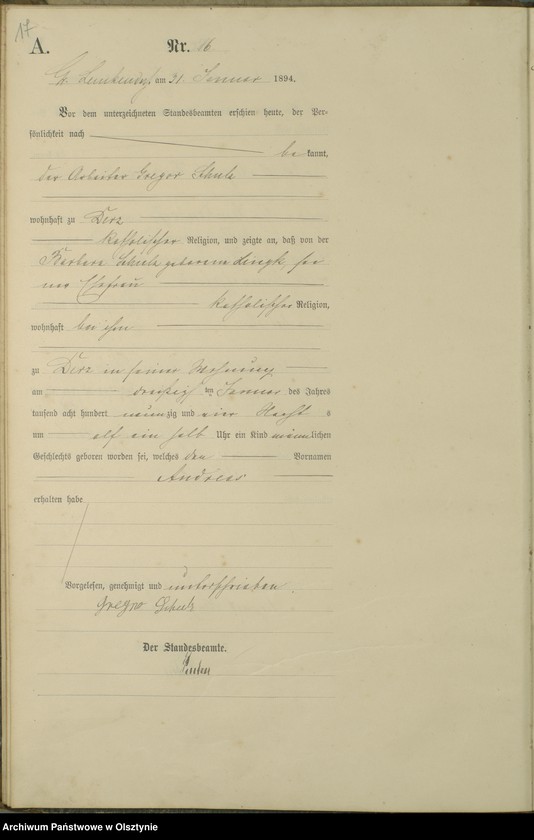 17
A.
Nr. 16
Gr. Lemkendorf, am 31. Januar 1894.
Vor dem unterzeichneten Standesbeamten erschien heute, der Per-
sönlichkeit nach
be kannt,
der Arbeiter Gregor
wohnhaft zu Derz
katholischer Religion, und zeigte an, daß von der
Barbara geborenen sei-
ner Ehefrau
katholischer Religion,
wohnhaft bei ihm
zu Derz in seiner Wohnung
am dreißigten Januar des Jahres
tausend acht hundert neunzig und vier Nachts
um elf ein halb Uhr ein Kind männlichen
Geschlechts geboren worden sei, welches den Vornamen
Andreas
erhalten habe
Vorgelesen, genehmigt und unterschrieben.
Gregor
Der Standesbeamte.
Archiwum Państwowe w Olsztynie